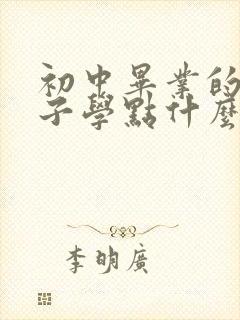 初中畢業的
子學點什麼
李明廣